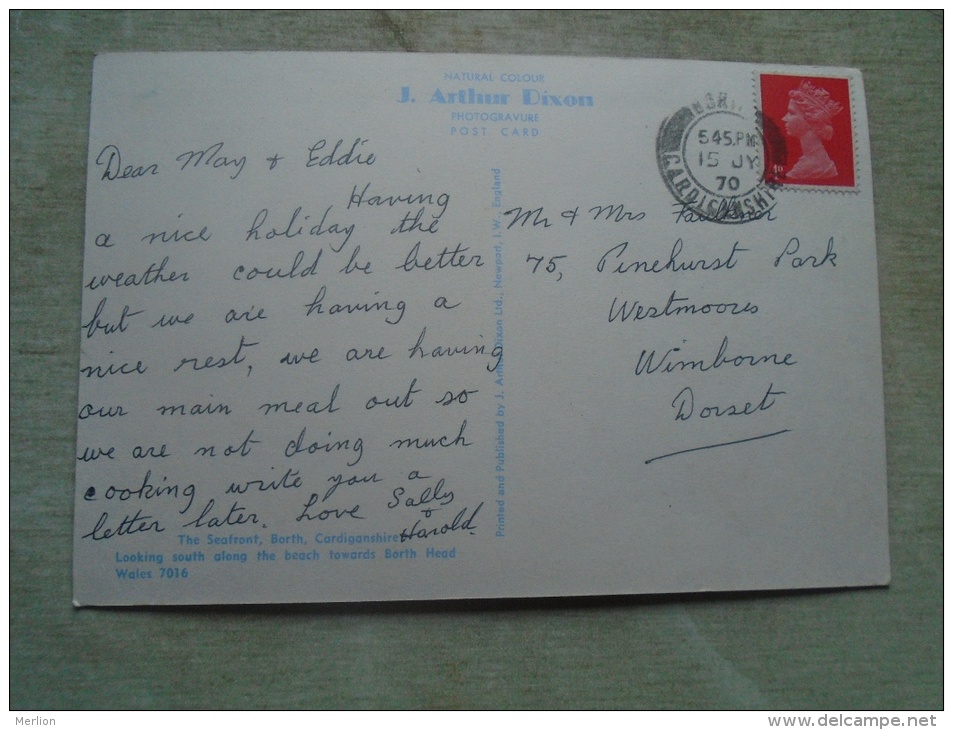 NATURAL COLOUR
J. Arthur Dixon
PHOTOGRAVURE
POST CARD
BORTH
5.45.PM
15 JY
70
CARDIGANSHIRE
Dear May & Eddie
Having
a nice holiday the
weather could be better
but we are having a
nice rest, we are having
our main meal out so
we are not doing much
cooking write you a
letter later. Love Sally
&
Harold.
The Seafront, Borth, Cardiganshire
Looking south along the beach towards Borth Head
Wales 7016
Printed and Published by J. Arthur Dixon Ltd., Newport, I.W., England
Mr & Mrs
75, Pinehurst Park
Westmoors
Wimborne
Dorset
Merlion
http://www.delcampe.net